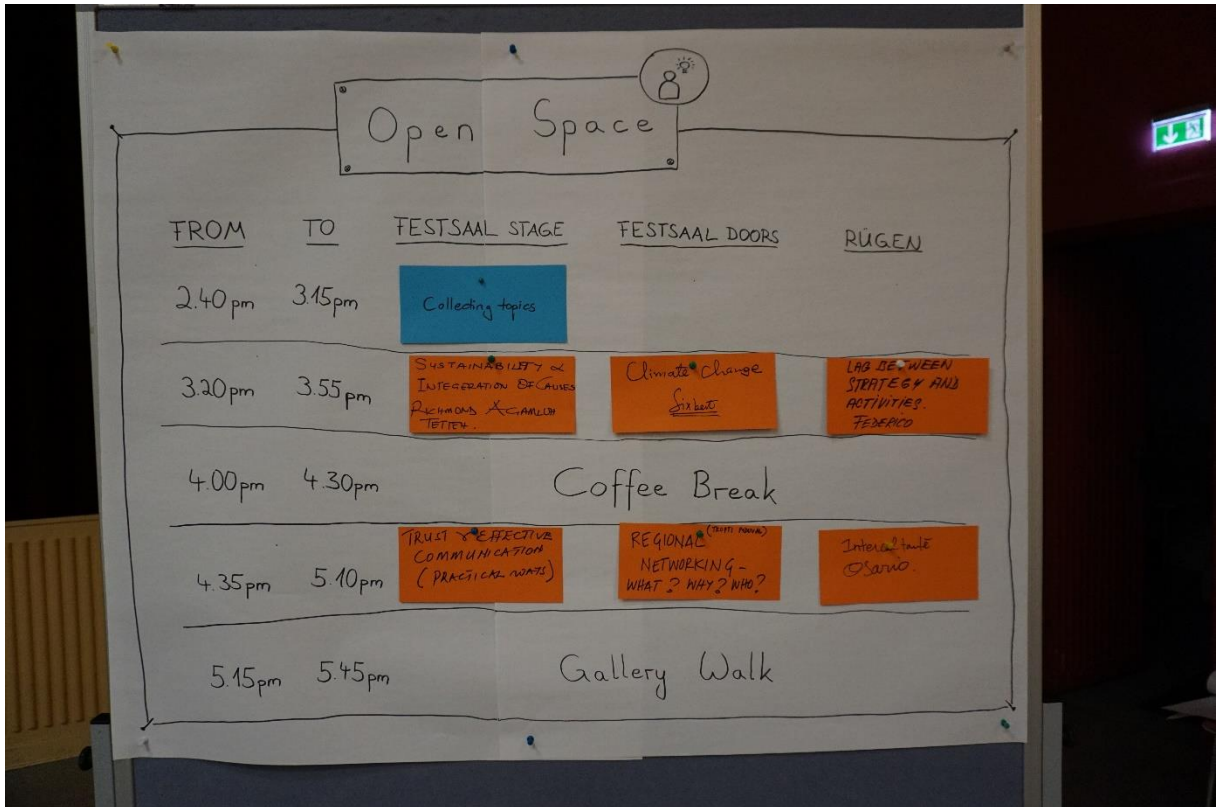 Open Space
FROM TO FESTSAAL STAGE FESTSAAL DOORS RÜGEN
2.40 pm 3.15 pm
Collecting topics
3.20 pm 3.55 pm
SUSTAINABILITY &
INTEGERATION OF CAUSES
RICHMOND
TETTEH.
Climate Change
Sixbert
LAG BETWEEN
STRATEGY AND
ACTIVITIES.
FEDERICO
4.00 pm 4.30 pm Coffee Break
4.35 pm 5.10 pm
TRUST & EFFECTIVE
COMMUNICATION
(PRACTICAL WAYS)
REGIONAL
NETWORKING -
WHAT? WHY? WHO?
Osario.
5.15 pm 5.45 pm Gallery Walk